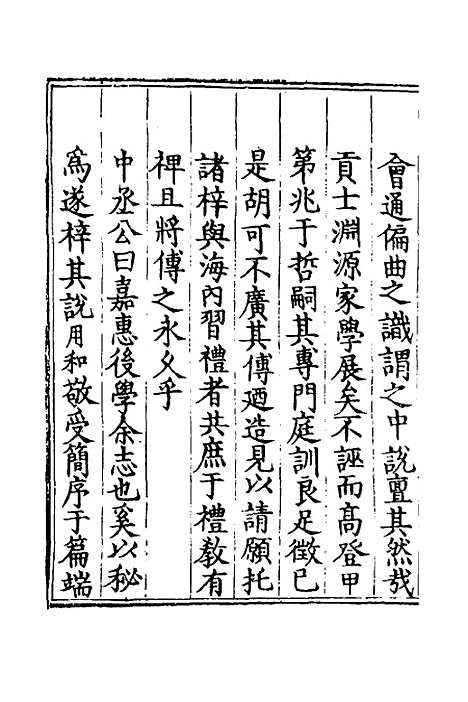 會通偏曲之識謂之中說亶其然哉
貢士淵源家學展矣不誣而高登甲
第兆于哲嗣其專門庭訓良足徵已
是胡可不廣其傳廼造見以請願托
諸梓與海內習禮者共庶于禮教有
裨且將傳之永久乎
中丞公曰嘉惠後學余志也奚以秘
為遂梓其說用和敬受簡序于篇端